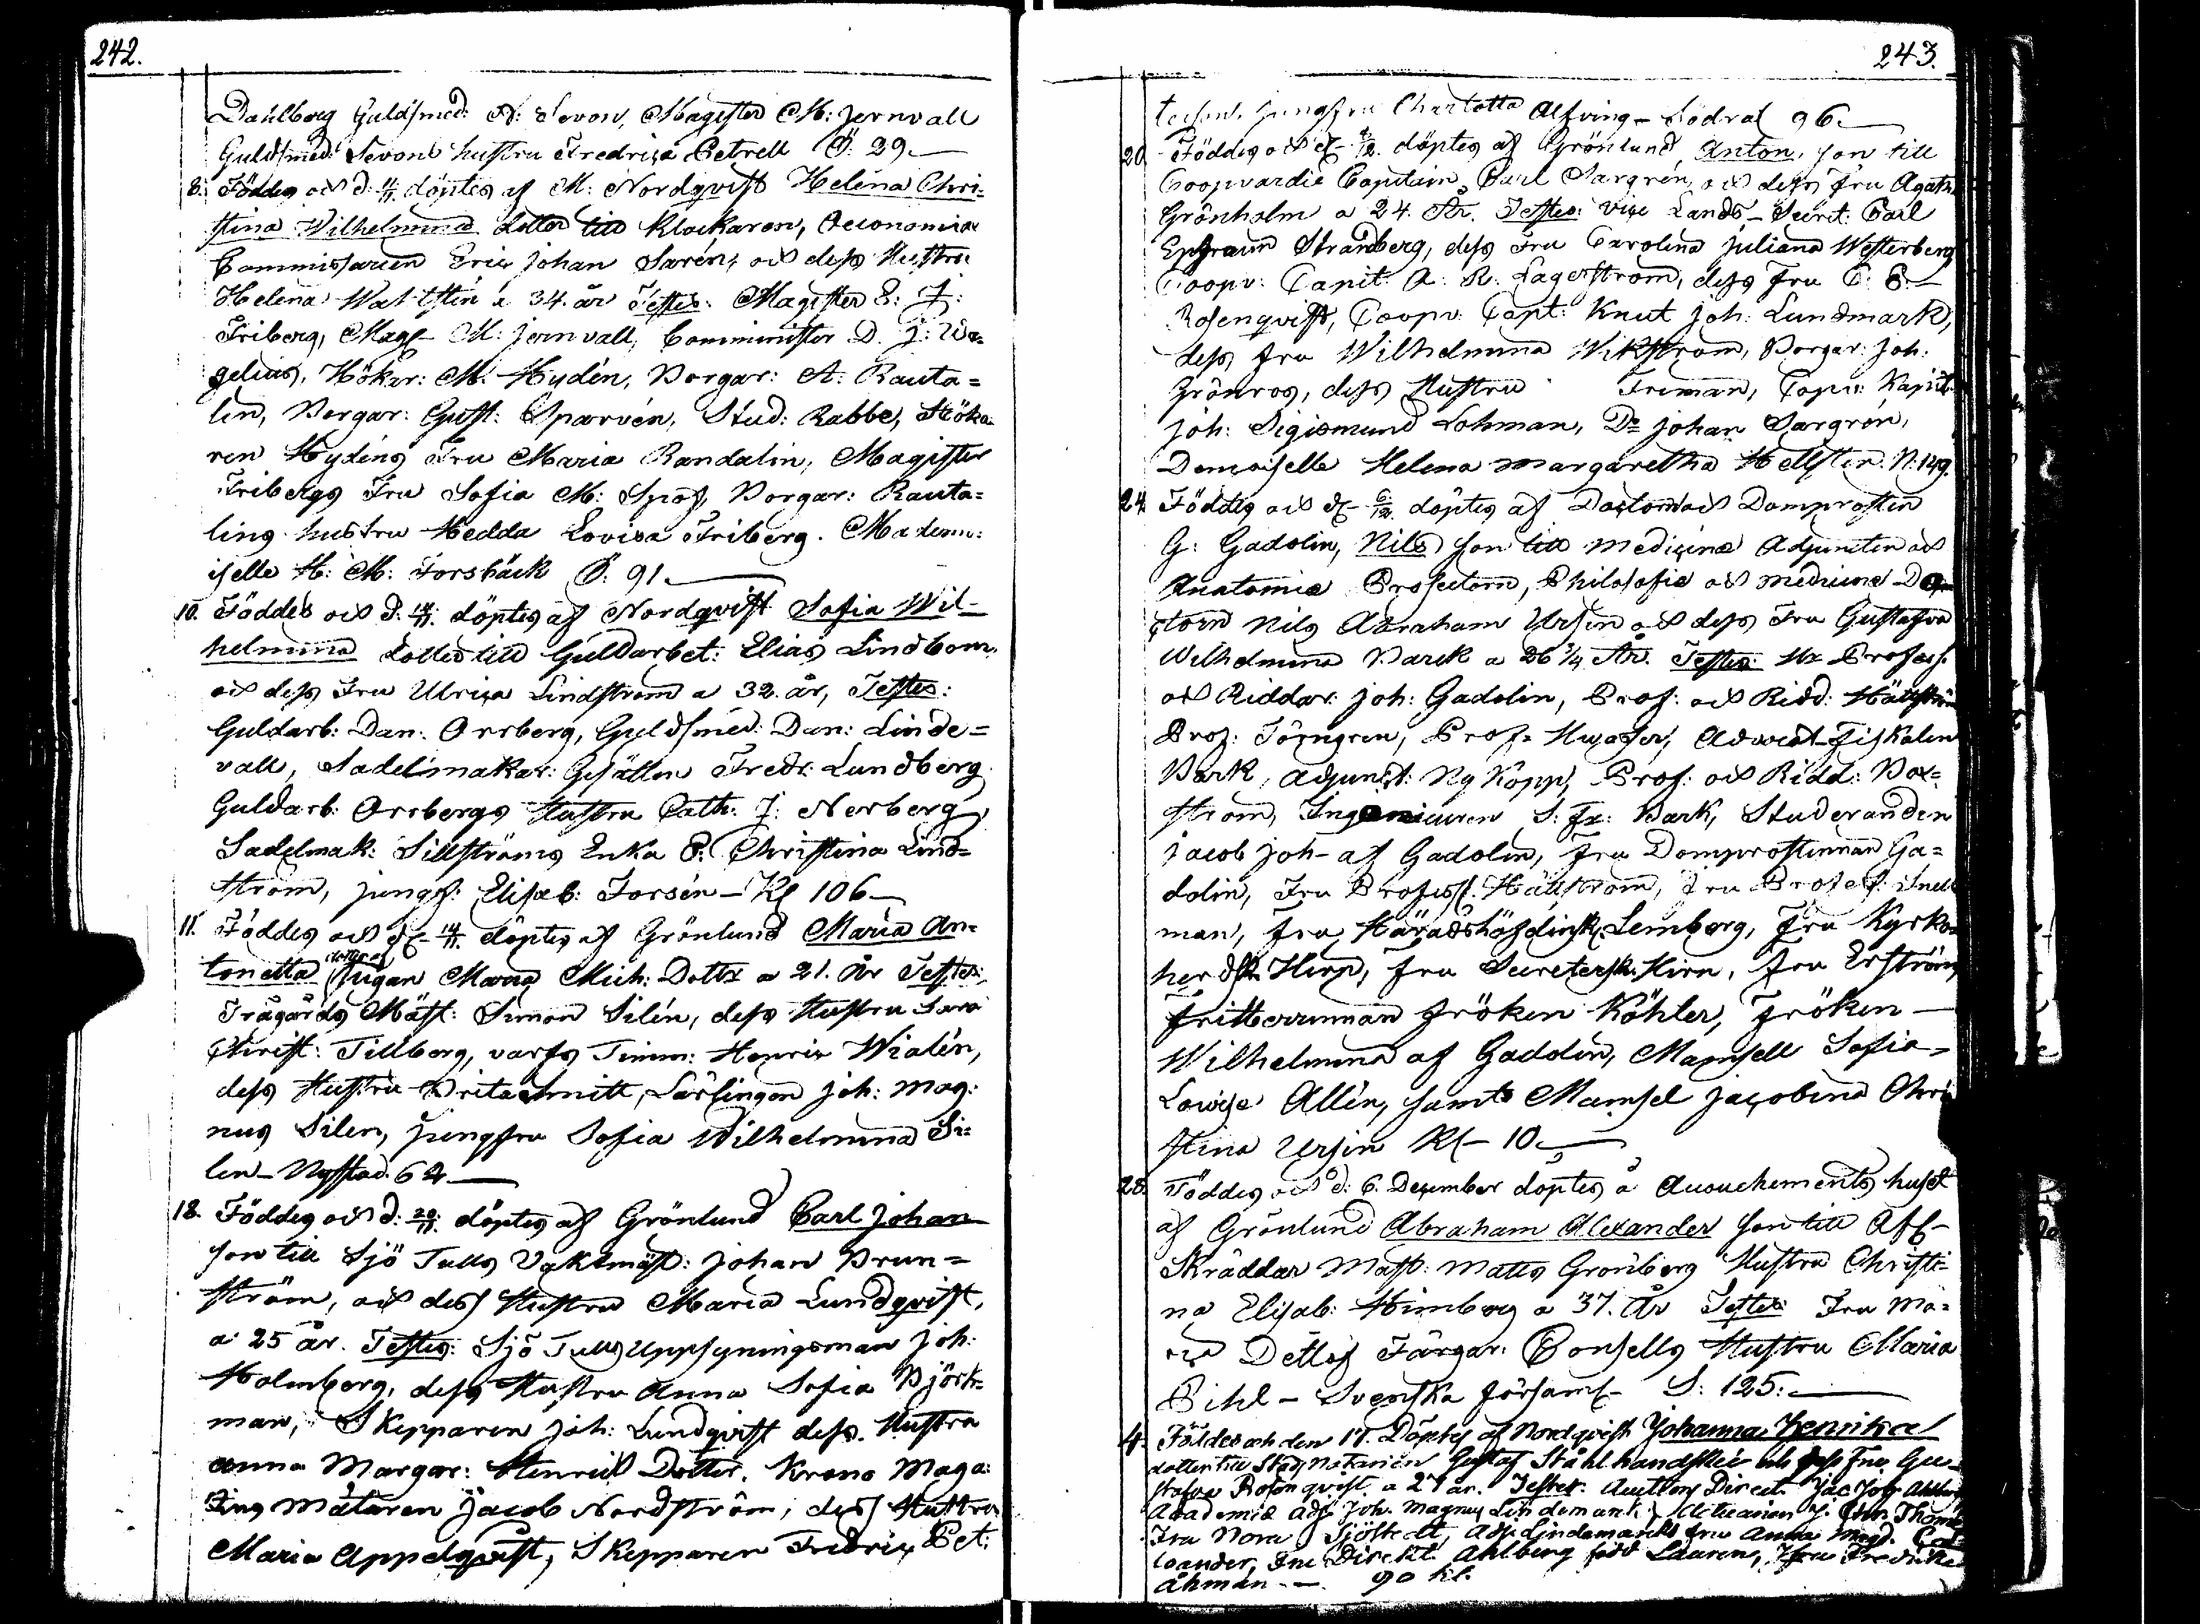 242.
Dahlberg Guldsmed: N: Sevon, Magister M: Jernvall
Guldsmed: Sevons hustru Fredrica Petrell Ö: 29.
8. Föddes och d: 11/11 döptes af M: Nordqvist Helena Chri-
stina Wilhelmina dotter till Klockaren, Oeconomiae
Commissarien Eric Johan Sarén, och dess Hustru
Helena Wallstén a 34. år Testes. Magister E: J:
Friberg, Mag M: Jernvall, Comminister D. J: Wa-
gelius, Hökar: M: Hydén, Borgar: A: Rauta=
lin, Borgar: Gust: Sparvén, Stud: Rabbe, Höka-
ren Hydéns Fru Maria Randalin, Magister
Fribergs Fru Sofia M: Borgar: Rauta=
lins hustru Hedda Lovisa Friberg. Madem:
iselle H: M: Forsbäck Ö: 91.
10. Föddes och d. 14/11 döptes af Nordqvist Sofia Wil-
helmina dotter till Guldarbet: Elias Lindbom,
och dess Fru Ulrica Lindström a 32. år, Testes:
Guldarb: Dan: Orrberg, Guldsmed: Dan: Linde=
vall, Sadelmakar: Gesällen Fredr: Lundberg
Guldarb: Orrbergs Hustru Cath: J: Nerberg,
Sadelmak: Sillströms Enka B: Christina Lind=
ström, jungf: Elisab: Forsén – Kl 106
11. Föddes och d 14/11 döptes af Grönlund Maria An-
tonetta pigan Maria Mich: Dottr a 21. År Testes:
Trägårds Mäst: Simon Silén, dess Hustru Sara
Christ: Tillberg, varfs Timm: Henric Wialén,
dess Hustru Brita Lärlingen Joh: Mag:
nus Silen, Jungfru Sofia Wilhelmina Si=
len – Nystad. 62
18. Föddes och d: 20/11 döptes af Grönlund Carl Johan
son till Sjö Tulls Vaktmäst: Johan Brun=
ström, och dess Hustru Maria Lundqvist,
a 25 år. Testes: Sjö Tulls Uppsyningsman Joh:
Holmberg, dess Hustru Anna Sofia Björk-
man, Skepparen Joh: Lundqvist dess Hustru
Anna Margar: Henrics Dotter. Krono Maga-
zins Mätaren Jacob Nordström, dess Hustru
Maria Appelqvist, Skepparen Fredric Pet:
243.
Jungfru Charlotta Alfving – Södral 96.
20. Föddes och d 4/12. döptes af Grönlund Anton, son till
Coopvardie Capitain Carl Sargrén, och dess Fru Agata
Grönholm a 24. År. Testes: vice Lands-Secret: Carl
Ephraim Strandberg, dess Fru Carolina Juliana Westerberg
Coopv: Capit: A: R: Lagerström, dess Fru C: B:
Rosenqvist, Coopv: Capt: Knut Joh: Lundmark,
dess fru Wilhelmina Wikström, Borgar: Joh:
Grönros, dess Hustru Freman, Kapit:
Joh: Sigismund Lohman, Dr Johan Sargrén,
Demoiselle Helena Margaretha Hellsten. N: 149.
24. Föddes och d 6/12. döptes af Doctorn och Domprosten
G: Gadolin, Nils son till Medicinæ Adjuncten och
Anatomiæ Prosectorn, Philosofiæ och Medicinæ Do-
ctorn Nils Abraham Ursin och dess Fru Gustafva
Wilhelmina Bark a 26 1/4 År. Testes: Hr Profess:
och Riddar: Joh: Gadolin, Prof: och Ridd: Hällström
Prof: Törngren, Prof: Advocat-Fiskalen
Bark, Adjunct: Nykopp, Prof: och Ridd: Bo=
ström, Ingenieuren S: Fr: Bark, Studeranden
Jacob Joh– af Gadolin, Fru Domprostinnan Ga=
dolin, Fru Profess: Hällström, Fru Profess: Snell
man, Fru Häradshöfdinsk: Lemberg, Fru Kyrko-
herdsk: Hirn, Fru Secretersk: Hirn, Fru Erström,
Friherrinnan Fröken Köhler, Fröken –
Wilhelmina af Gadolin, Mamsell Sofia-
Lovisa Allén, samt Mamsel Jacobina Chri
stina Ursin Kl – 10.
28. Föddes och d: 6. December döptes å Accouchements huset
af Grönlund Abraham Alexander son till Afl–
Skräddar Mäst: Matts Grönberg Hustru Christi-
na Elisab: Himberg a 37. År Testes: Fru Ma=
ria Detlof Färgar: Bonsells Hustru Maria
Pihl – Svenska församl – S: 125:
4. Föddes och den 17. Döptes af Nordqvist Johanna Henrika
dotter till Stads Notarien Gustaf Stålhandské och dess Fru Gu-
stafva Rosenqvist a 27 år. Testes: Auctions Direct: Jac Joh: Ahlberg
Academie Adj: Joh. Magnus Lindemark, Actuarien J. Thomé
Fru Nora Sjöstedt, Adj: Lindemarks fru Anna Magd.
loander, Fru Direkt. Ahlberg född Lauren, Jfru Fredrika
Åhman. – . 90 kl.